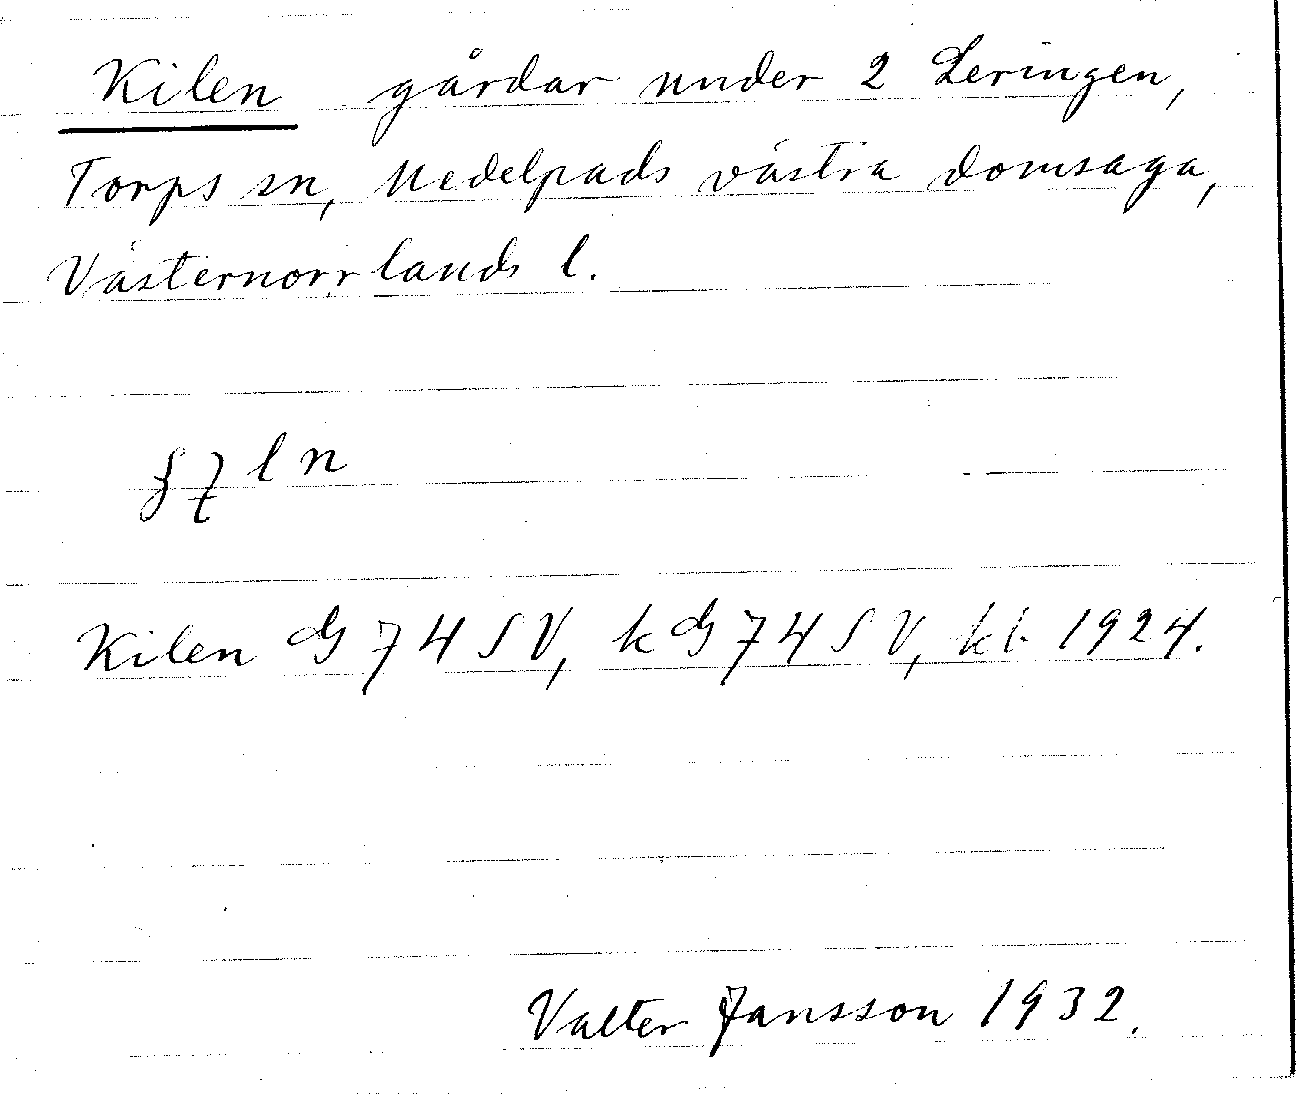 Kilen gårdar under 2 Leringen,
Torps sn, Medelpads västra domsaga,
Västernorrlands l.
Kilen G 74 SV, kG 74 SV, kb 1924.
Valter Jansson 1932.